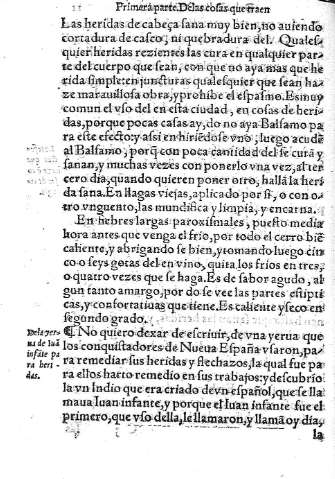 Primera parte. De las cosas que traen
Las heridas de cabeça sana muy bien, no auiendo
cortadura de casco, ni quebradura del. Quales-
quier heridas rezientes las cura en qualquier par-
te del cuerpo que sean, con que no aya mas que he
rida simple: en juncturas qualesquier que sean ha-
ze marauillosa obra, y prohibe el espasmo. Es muy
comun el vso del en esta ciudad, en cosas de heri-
das, porque pocas casas ay, do no aya Balsamo pa
ra este efecto: y assi en hiriēdose vno, luego acudē
al Balsamo, porq̄ con poca cantidad del se curā y
sanan, y muchas vezes con ponerlo vna vez, al ter
cero dia, quando quieren poner otro, hallā la heri
da sana. En llagas viejas, aplicado por sí, o con o-
tro vnguento, las mundifica y limpia, y encarna.
En fiebres largas paroxismales, puesto media
hora antes que venga el frio, por todo el cerro biē
caliente, y abrigando se bien, y tomando luego cin
co o seys gotas del en vino, quita los frios en tres,
o quatro vezes que se haga. Es de sabor agudo, al
gun tanto amargo, por do se vee las partes estipti
cas, y confortatiuas que tiene. Es caliente y seco en
segundo grado.
De la yer-
ua de Iuā
infāte pa
ra heri-
das.
¶ No quiero dexar de escriuir, de vna yerua que
los conquistadores de Nueua España vsaron, pa-
ra remediar sus heridas y flechazos, la qual fue pa
ra ellos harto remedio en sus trabajos: y descubrio
la vn Indio que era criado devn español, que se lla
maua Iuan infante, y porque el Iuan infante fue el
primero, que vso della, le llamaron, y llamā oy dia,
la